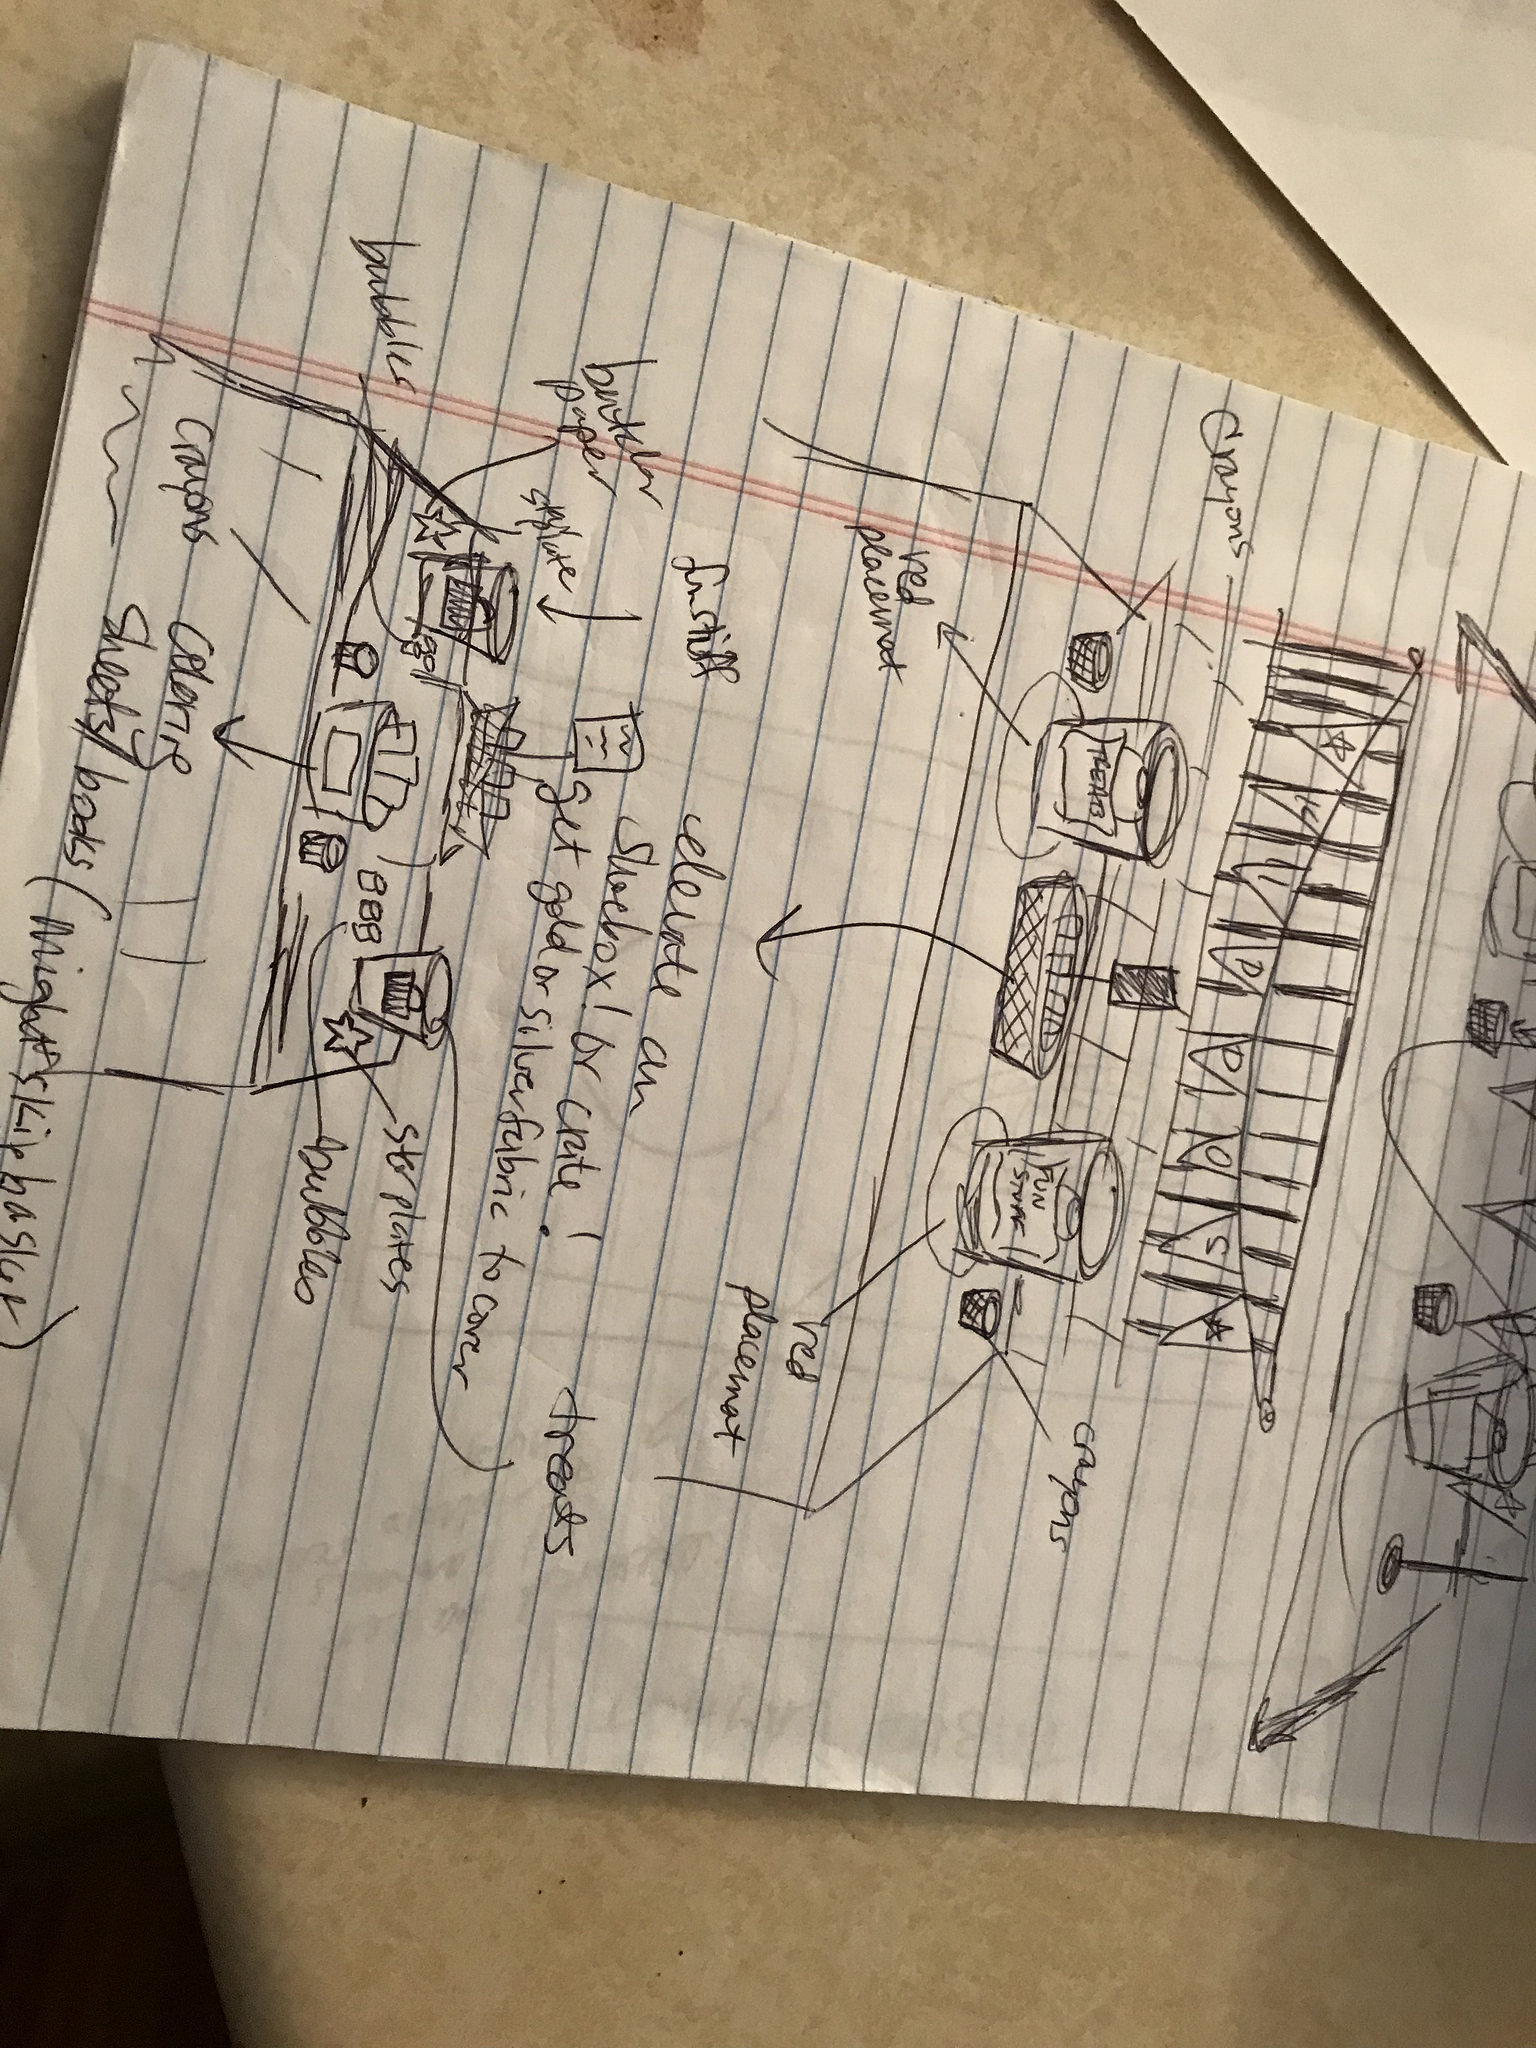 Crayons
TREATS
FUN
STUFF
crayons
red
placemat
red
placemat
fun stuff
elevate on
shoebox! or crate!
get gold or silver fabric to cover
treats
butcher
paper
bubbles
star plates
bubbles
crayons
sheets/books (might skip basket)